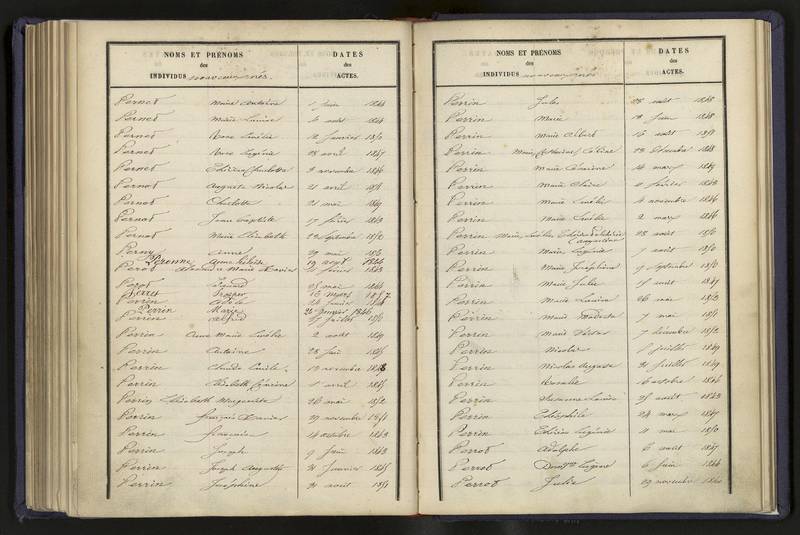 NOMS ET PRÉNOMS
des
INDIVIDUS nouveaux nés.
DATES
des
ACTES.
Pernet Marie Antoine 1 juin 1843
Pernet Marie Louise 4 août 1844
Pernet Rose Emélie 12 janvier
Pernet Rose Eugénie 28 avril 1847
Pernet Thérèse Charlotte 3 novembre 1846
Pernet Auguste Nicolas 21 avril
Pernet Charlotte 21 mai 1849
Pernet Jean Baptiste 17 février 1843
Pernet Marie Elisabeth 22 septembre 1852
Perny Anne 29 mai
Peronne Anne 19 août 1844
Perot Marie Xavier février 1843
Perot 25 mai 1846
Perret Prosper 13 mars 1857
Perrin 24 janvier
Perrin Marie 22 janvier 1846
Perrin Alfred 27 juillet
Perrin Anne Marie Emélie 2 août 1849
Perrin Antoine 28 juin
Perrin Claude Emile 13 novembre 1848
Perrin Elisabeth Catherine 1 avril
Perrin Elisabeth Marguerite 26 mai 1852
Perrin François Xavier 29 novembre 1851
Perrin Françoise 14 octobre 1843
Perrin Joseph 9 juin 1843
Perrin Joseph Auguste 31 janvier 1845
Perrin Joséphine 31 août 1851
NOMS ET PRÉNOMS
des
INDIVIDUS nouveaux nés
DATES
des
ACTES.
Perrin Jules 28 août 1848
Perrin Marie 18 juin 1848
Perrin Marie Albert 16 août
Perrin Marie Catherine 23 décembre 1848
Perrin Marie 14 mars 1849
Perrin Marie Claire 2 février 1843
Perrin Marie Emélie 4 novembre 1846
Perrin Marie Emélie 2 mars 1846
Perrin Marie Emélie 28 août
Augustine
Perrin Marie Eugénie 7 août 1850
Perrin Marie Joséphine 17 septembre
Perrin Marie Julie août 1849
Perrin Marie Louise 26 mai 1852
Perrin Marie Modeste 7 mai
Perrin Marie Victor 7 décembre 1852
Perrin Nicolas juillet 1849
Perrin Nicolas Auguste 31 juillet 1849
Perrin Rosalie 16 octobre 1846
Perrin Suzanne Louise 25 août 1843
Perrin Théophile 24 mars 1849
Perrin Thérèse Eugénie 11 mai 1850
Perrot Adolphe 6 août 1847
Perrot Eugène 6 juin 1844
Perrot Julie 29 novembre